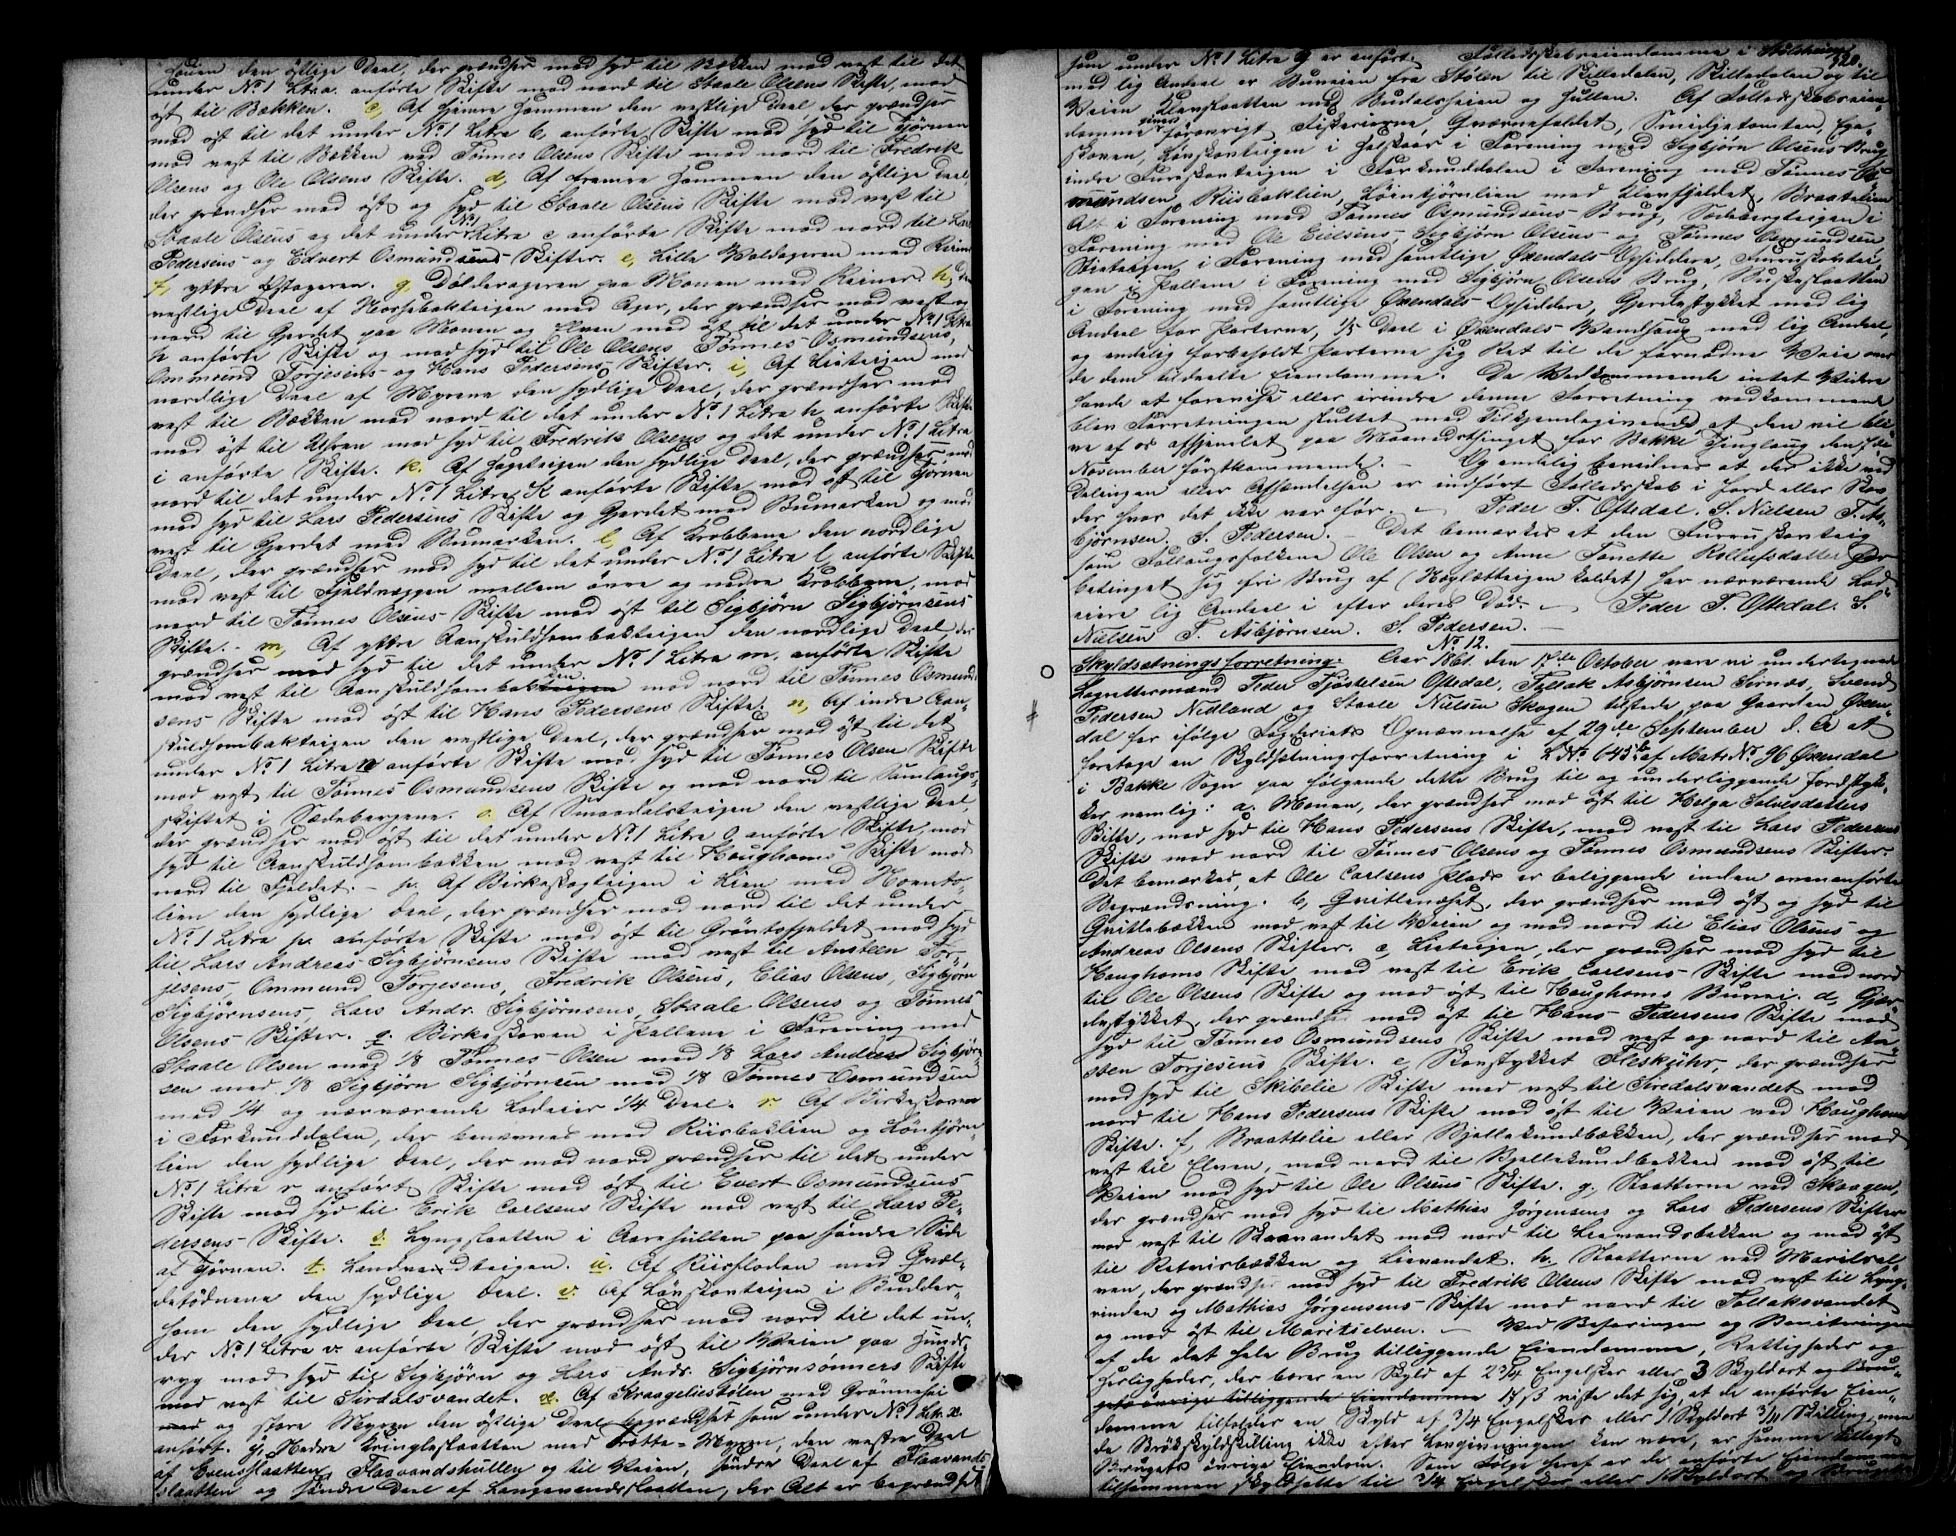 Houen den östlige Deel, der grændser mod syd til Bækken mod vest til det
under No. 1 Litra anförte Skifte mod nord til Staale Olsens Skifte, mod
öst til Bækken. c, Af hjemre Hammen den vestlige Deel, der grændser
mod öst til det under No. 1 Litra b, anförte Skifte mod syd til Tjörnen
mod vest til Bækken ved Tönnes Olsens Skifte mod nord til Fredrik
Olsens og Ole Olsens Skifte. d, Af fremre Hammen den östlige Deel,
der grændser mod öst og syd til Staale Olsens Skifte mod vest til
Staale Olsens og det under No. 1 Litra c anförte Skifte mod nord til Lars
Pedersens og Edvert Osmundsens Skifter. e, Lille Voldageren med Reiner
f, yttre Östageren. g, Dölderageren paa Monen med Reiner. h, den
vestlige Deel af Horsebakteigen med Ager, der grændser mod vest og
nord til Gjerdet paa Monen og Elven mod öst til det under No. 1 Litra
h anförte Skifte og mod syd til Ole Olsens, Tönnes Osmundsens,
Ommund Torjesens og Hans Pedersens Skifter. i, Af Liteigen med
nordlige Deel af Myrene den sydlige Deel, der grændser mod
vest til Bækken mod nord til det under No. 1 Litra h, anförte Skifte
mod öst til Elven mod syd til Fredrik Olsens og det under No. 1 Litra
i anförte Skifte. k. Af Hageteigen den sydlige Deel, der grændser mod
nord til det under No. 1 Litra K anförte Skifte mod öst til Tjörnen
mod syd til Lars Pedersens Skifte og Gjerdet mod Bumarken og mod
vest til Gjerdet mod Bumarken. l, Af Krobbene den nordlige
Deel, der grændser mod syd til det under No. 1 Litra l, anförte Skifte
mod vest til Fjeldvæggen mellem övre og nedre Krobbene, mod
nord til Tönnes Olsens Skifte mod öst til Sigbjörn Sigbjörnsens
Skifte. - m, Af yttre Aanskuldhombakteigen den nordlige Deel, der
grændser mod syd til det under No. 1 Litra m. anförte Skifte
mod vest til Aanskuldhombakken mod nord til Tönnes Osmund-
sens Skifte mod öst til Hans Pedersens Skifte. n, Af indre Aan-
skuldhombakteigen den vestlige Deel, der grændser mod öst til det
under No. 1 Litra n anförte Skifte mod syd til Tönnes Olsen Skifte
mod vest til Tönnes Osmundsens Skifte og mod nord til Samlaugs-
skiftet i Sædebergene. o. Af Smaadalsteigen den vestlige Deel,
der grændser mod öst til det under No. 1 Litra o anförte Skifte, mod
syd til Aanskuldhombakken mod vest til Houghoms Skifte mod
nord til Fjeldet. - p. Af Birkeskogteigen i Lien med Hovnto-
lien den sydlige Deel, der grændser mod nord til det under
No. 1 Litra p. anförte Skifte mod öst til Gröntofjeldet mod syd
til Lars Andreas Sigbjörnsens Skifte mod vest til Ansteen Tor-
jesens, Ommund Torjesens, Fredrik Olsens, Elias Olsens, Sigbjörn
Sigbjörnsens, Lars Andr. Sigbjörnsens, Staale Olsens og Tönnes
Olsens Skifter. q. Birkeskoven i Hallene i Forening med
Staale Olsen med 1/8 Tönnes Olsen med 1/8 Lars Andreas Sigbjörn
sen med 1/8 Sigbjörn Sigbjörnsen med 1/8 Tönnes Osmundsen
med 1/4 og nærværende Lodeier 1/4 Deel. r. Af Birkeskoven
i Forkunddalen, der benævnes med Riisbaklien og Löntjörn-
lien den sydlige Deel, der mod nord grændser til det under
No. 1 Litra r anfört Skifte mod öst til Evert Osmundsens
Skifte mod syd til Erik Carlsens Skifte mod vest til Lars Pe-
dersens Skifte. s. Lyngslaatten i Aarehullen paa söndre Side
af Tjörnen. t. Landvandteigen. u. Af Riisfloden med Qvæl-
detödnene den sydlige Deel. v. Af Lövskovteigen i Budder-
hom den sydlige Deel, der grændser mod nord til det un-
der No. 1 Litra v. anförte Skifte mod öst til Veien paa Hunds-
ryg mod syd til Sigbjörn og Lars Ands. Sigbjörnsönners Skifte
mod vest til Sirdalsvandet. x. Af Kraageliestölen med Grönnehei
med og store Myren den östlige Deel begrændset som under No. 1 Litr. x.
anfört. y. Nedre Kringleslaatten med Trotte-Myren, den vestre Deel
af Evensslaatten, Flaavandshullen og til Veien, söndre Deel af Flaavands-
slaatten og söndre Deel af Langevandsslaatten, der Alt er begrændset
320.
som under No. 1 Litra y er anfört. Fælledsskabseiendomme i Stölsheien
med lig Andeel er Buveien fra Stölen til Killedalen, Killedalen og til
Veien Klevslaatten med Nudalsheien og Hullen. Af Fælledsskabseien-
domme gives forövrigt Fiskerierne, Qværnefaldet, Smidjetomten, Ege-
skoven, Lövskovteigen i Holskaar i Forening med Sigbjörn Olsens Brug
indre Furuskovteigen i Forkunddalen i Forening med Tönnes Os-
mundsen, Riisbaklien, Löintjörnlien med Klevfjeldet, Braatelien
Alt i Forening med Tönnes Osmundsens Brug, Solbergteigen i
Forening med Ole Eielsens, Sigbjörn Olsens og Tönnes Osmundsens
Stieteigen i Forening med samtlige Öxendals Opsiddere, Furuskovtei-
gen i Hallene i Forening med Sigbjörn Olsens Brug, Buskeslaatten
i Forening med samtlige Öxendals Opsiddere, Gjerdestykket med lig
Andeel for Parterne, 1/5 Deel i Öxendals Vandsaug med lig Andeel,
og endelig forbeholdt Parterne sig Ret til de fornödne Veie over
de dem tildeelte Eiendomme. Da Vedkommende intet Videre
havde at forevise eller erindre denne Forretning vedkommende
blev Forretningen sluttet med Tilkjendegivende, at den vil bli-
ve af os afhjemlet paa Maanedsthinget for Bakke Thinglaug den 1ste
November förstkommende. — Og endelig bevidnes at der ikke ved
Delingen eller Afhændelsen er indfört Fælledsskab i Jord eller Skov
der hvor det ikke var för. — Peder T. Oftedal. S. Nielsen. T. As-
björnsen. S. Pedersen. — Det bemærkes at den Furuskovteig
som Follaugsfolkene Ole Olsen og Anne Tonette Rollufsdatter har
betinget sig fri Brug af (Höglætteigen kaldet) har nærværende Lod-
eiere lig Andeel i efter deres Död. — Peder T. Oftedal. S.
Nielsen T. Asbjörnsen. S. Pedersen. —
No. 12.
Skyldsætningsforretning. Aar 1861. den 1ste October vare vi undertegnede
Lagrettesmænd Peder Tjöstelsen Oftedal, Tollak Asbjörnsen Sirnæs, Svend
Pedersen Nedland og Staale Nielsen Skogen tilstede paa Gaarden Öxen-
dal for ifölge Fogderiets Opnævnelse af 29de September d. A at
foretage en Skyldsætningsforretning i L No. 645b af Mat. No. 96 Öxendal
i Bakke Sogn paa fölgende dette Brug til og underliggende Jordstyk-
ker nemlig: a. Monen, der grændser mod öst til Helga Salvesdatters
Skifte, mod syd til Hans Pedersens Skifte, mod vest til Lars Pedersens
Skifte mod nord til Tönnes Olsens og Tönnes Osmundsens Skifter.
Det bemærkes, at Ole Carlsens Plads er beliggende inden ovenanförte
Begrændsning. b, Qvitlenæset, der grændser mod öst og syd til
Qvitlebækken mod vest til Veien og mod nord til Elias Olsens og
Andreas Olsens Skifter. c, Lieteigen, der grændser mod syd til
Houghoms Skifte mod vest til Erik Carlsens Skifte mod nord
til Ole Olsens Skifte og mod öst til Houghoms Buvei. d, Gjær-
destykket, der grændser mod öst til Hans Pedersens Skifte mod
syd til Tönnes Osmundsens Skifte mod vest og nord til An-
steen Torjesens Skifte. e, Skovstykket Fleskjöhr, der grændser
mod syd til Skibelie Skifte mod vest til Sredalsvandet mod
nord til Hans Pedersens Skifte mod öst til Veien ved Houghoms
Skifte. f, Braattelie eller Bjellekundbækken, der grændser mod
vest til Elven, mod nord til Bjellekundbækken mod öst til
Veien mod syd til Ole Olsens Skifte. g, Slaatterne ved Skaagen,
der grændser mod syd til Mathias Jörgensens og Lars Pedersens Skifter
mod vest til Skaavandet mod nord til Lievandsbækken og mod öst
til Retvisbækken og Lievandet. h. Slaatterne ved Maritsel-
ven, der grændser mod syd til Fredrik Olsens Skifte mod vest til Lyng-
vinden og Mathias Jörgensens Skifte mod nord til Tollaksvandet
og mod öst til Maritselven. — Ved Besaringen og Boniteringen
af de det hele Brug tilliggende Eiendomme, Rettigheder og
Herligheder, der bærer en Skyld af 2 3/4 Engelsker eller 3 Skyldort og Bru-
gets övrige tilliggende Eiendomme 17 ß viste det sig at de anförte Eien-
domme tilholdes en Skyld af 3/4 Engelsker eller 1 Skyldort 3/11 Skilling, men
da Brökskyldskilling ikke efter Lovgivningen kan være, er samme tillagt
Brugets övrige Eiendom. Som Fölge heraf er de anförte Eiendomme
tilsammen skyldsatte til 3/4 Engelsker eller 1 Skyldort og Brugets